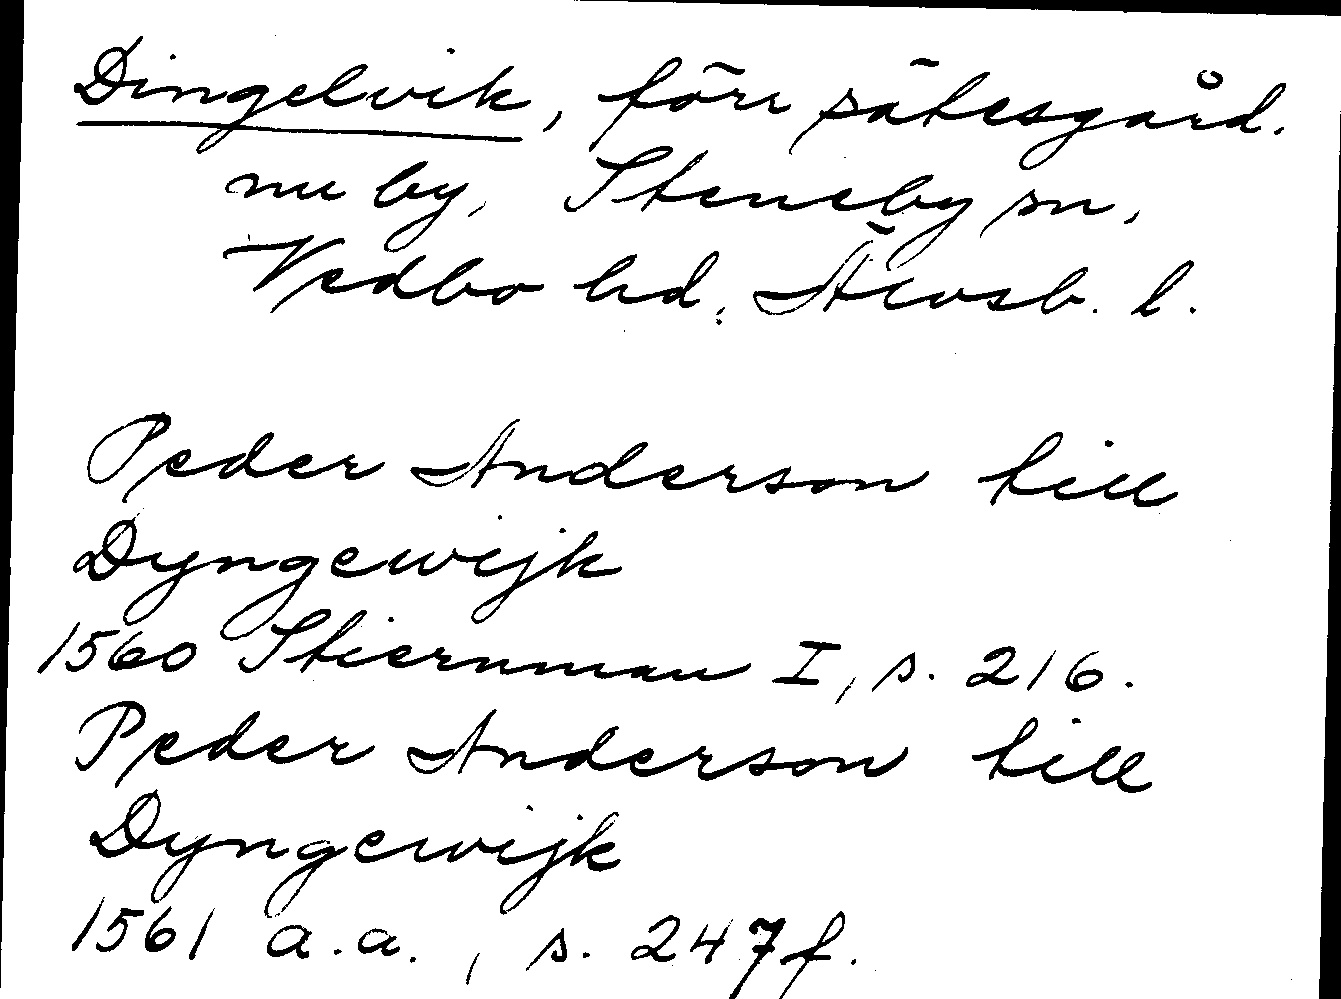 Dingelvik, förr sätesgård.
nu by, Steneby sn,
Vedbo hd, Älvsb. l.
Peder Anderson till
Dyngewijk
1560 Stiernman I, s. 216.
Peder Anderson till
Dyngewijk
1561 a.a., s. 247 f.